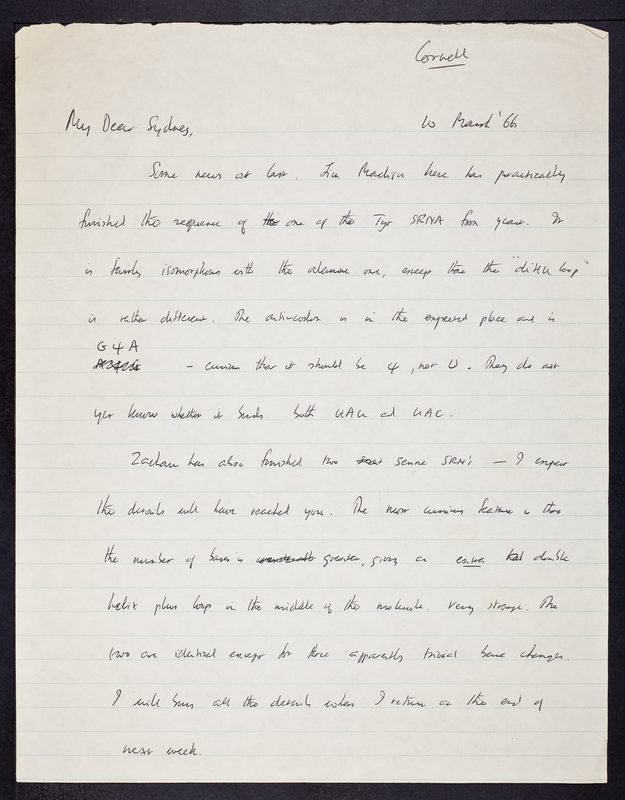 Cornell
My Dear Sydney, 10 March '66
Some news at last. Jim Madison here has practically
finished the sequence of the one of the Tyr SRNA from yeast. It
is fairly isomorphous with the alanine one, except that the "diHU loop"
is rather different. The anticodon is in the expected place and is
G Ψ A
- curious that it should be Ψ, not U. They do not
yet know whether it binds both UAU and UAC.
Zachau has also finished two serine SRNA's — I expect
the details will have reached you. The most curious feature is that
the number of bases is greater, giving an extra double
helix plus loop in the middle of the molecule. Very strange. The
two are identical except for three apparently trivial base changes.
I will bring all the details when I return at the end of
next week.